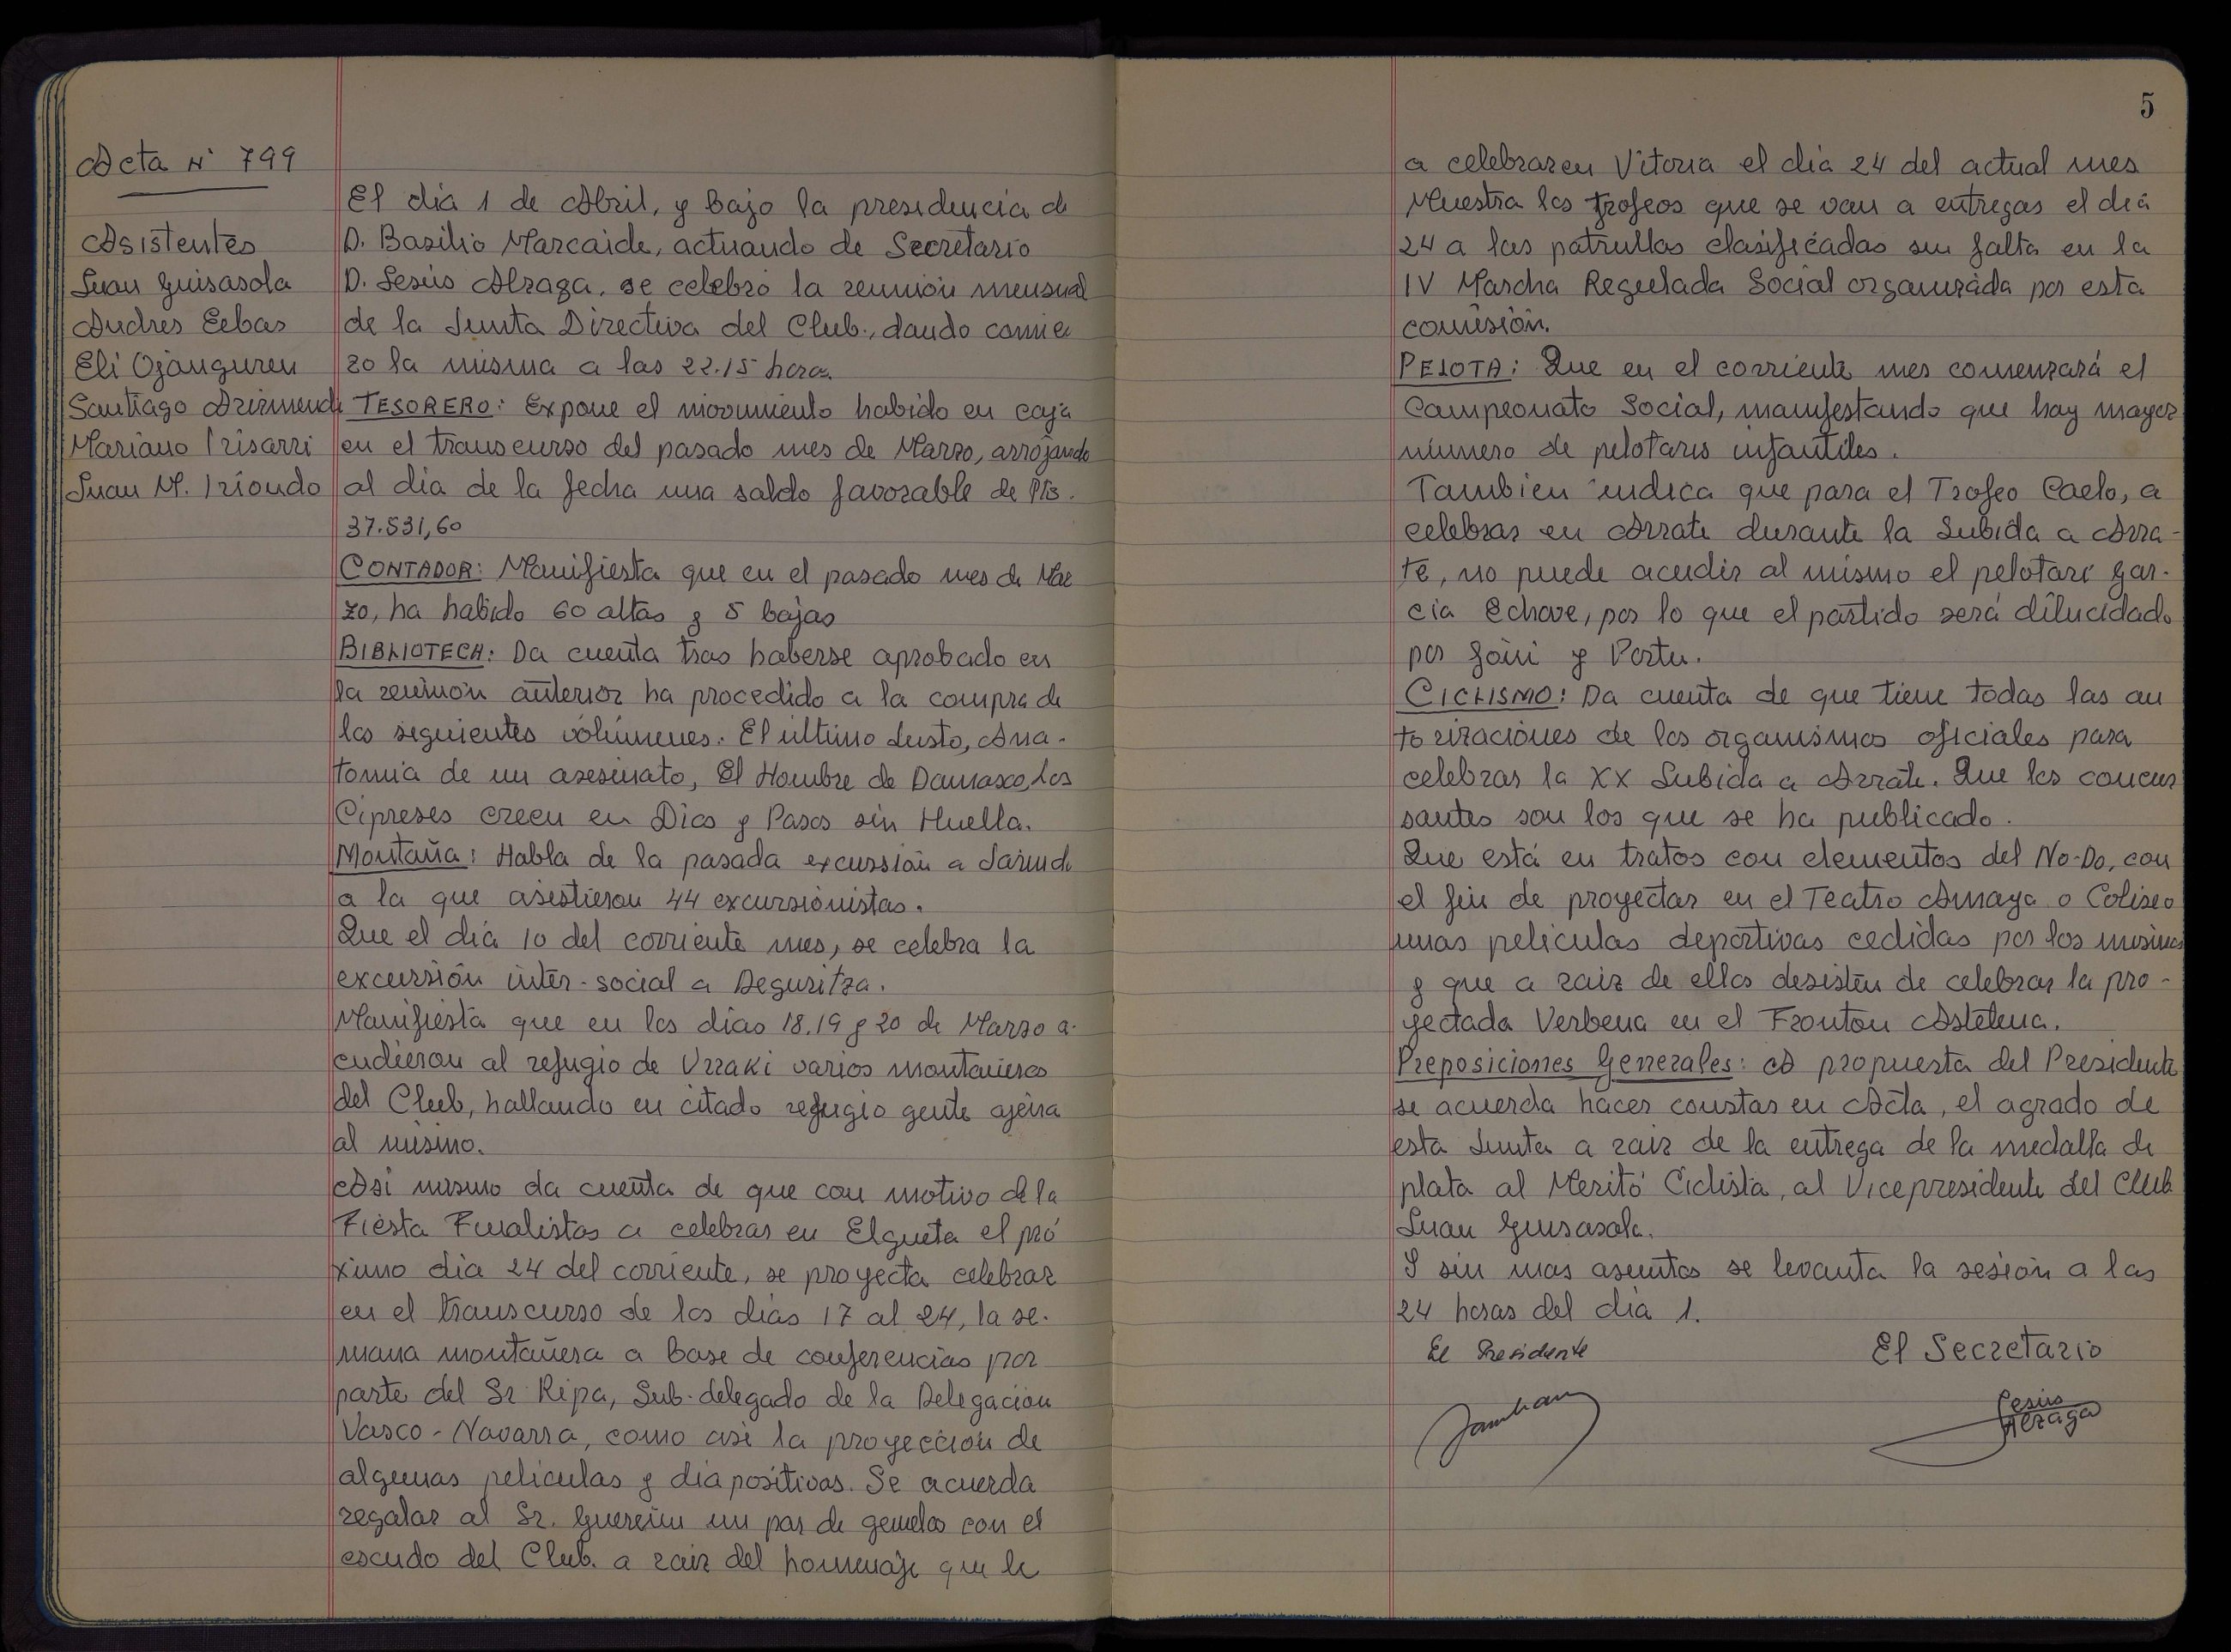 Acta Nº 799
Asistentes
Juan Guisasola
Andres Eebas
Eli Ojanguren
Santiago Arizmendi
Mariano Irisarri
Juan M. Iriondo
El dia 1 de Abril, y bajo la presidencia de
D. Basilio Marcaide, actuando de Secretario
D. Jesús Alzaga, se celebró la reunión mensual
de la Junta Directiva del Club., dando comie
zo la misma a las 22.15 horas.
TESORERO: Expone el movimiento habido en caja
en el transcurso del pasado mes de Marzo, arrojando
al dia de la fecha una saldo favorable de Pts.
37.531,60
CONTADOR: Manifiesta que en el pasado mes de Mar
zo, ha habido 60 altas y 5 bajas
BIBLIOTECA: Da cuenta tras haberse aprobado en
la reunión anterior ha procedido a la compra de
los siguientes volúmenes. El último Justo, Ana-
tomia de un asesinato, El Hombre de Damasco, Los
Cipreses creen en Dios y Pasos sin Huella.
Montaña: Habla de la pasada excurssión a
a la que asistieron 44 excursionistas.
Que el dia 10 del corriente mes, se celebra la
excurssión inter-social a Deguritza.
Manifiesta que en los días 18.19 y 20 de Marzo a-
cudieron al refugio de Urraki varios montañeros
del Club, hallando en citado refugio gente ajena
al mismo.
Asi mismo da cuenta de que con motivo de la
Fiesta Finalistas a celebrar en Elgueta el pró
ximo dia 24 del corriente, se proyecta celebrar
en el transcurso de los dias 17 al 24, la se-
mana montañera a base de conferencias por
parte del Sr Ripa, Sub-delegado de la Delegación
Vasco-Navarra, como asi la proyección de
algunas peliculas y diapositivas. Se acuerda
regalar al Sr. Guereñu un par de gemelos con el
escudo del Club. a raiz del homenaje que le
5
a celebrar en Vitoria el dia 24 del actual mes
Muestra los trofeos que se van a entregar el dia
24 a las patrullas clasificadas sin falta en la
IV Marcha Regulada Social organizada por esta
comisión.
PELOTA: Que en el corriente mes comenzará el
Campeonato Social, manifestando que hay mayor
número de pelotaris infantiles.
Tambien indica que para el Trofeo Caelo, a
celebrar en Arrate durante la Subida a Arra-
te, no puede acudir al mismo el pelotari Gar-
cia Echave, por lo que el partido será dilucidado
por Goñi y Portu.
CICLISMO: Da cuenta de que tiene todas las au
torizaciones de los organismos oficiales para
celebrar la XX Subida a Arrate. Que los concur
santes son los que se ha publicado.
Que está en tratos con elementos del No-Do, con
el fin de proyectar en el Teatro Amaya o Coliseo
unas peliculas deportivas cedidas por los mismos
y que a raiz de ellos desisten de celebrar la pro-
yectada Verbena en el Frontón Astelena.
Preposiciones Generales: A propuesta del Presidente
se acuerda hacer constar en Acta, el agrado de
esta Junta a raiz de la entrega de la medalla de
plata al Merito Ciclista, al Vicepresidente del Club
Juan Guisasola.
Y sin mas asuntos se levanta la sesión a las
24 horas del dia 1.
El Presidente
El Secretario
Jesús
Alzaga